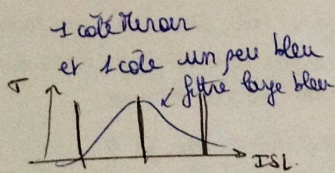 1 côté miroir
et 1 côté un peu bleu
filtre large bleu
T
ISL